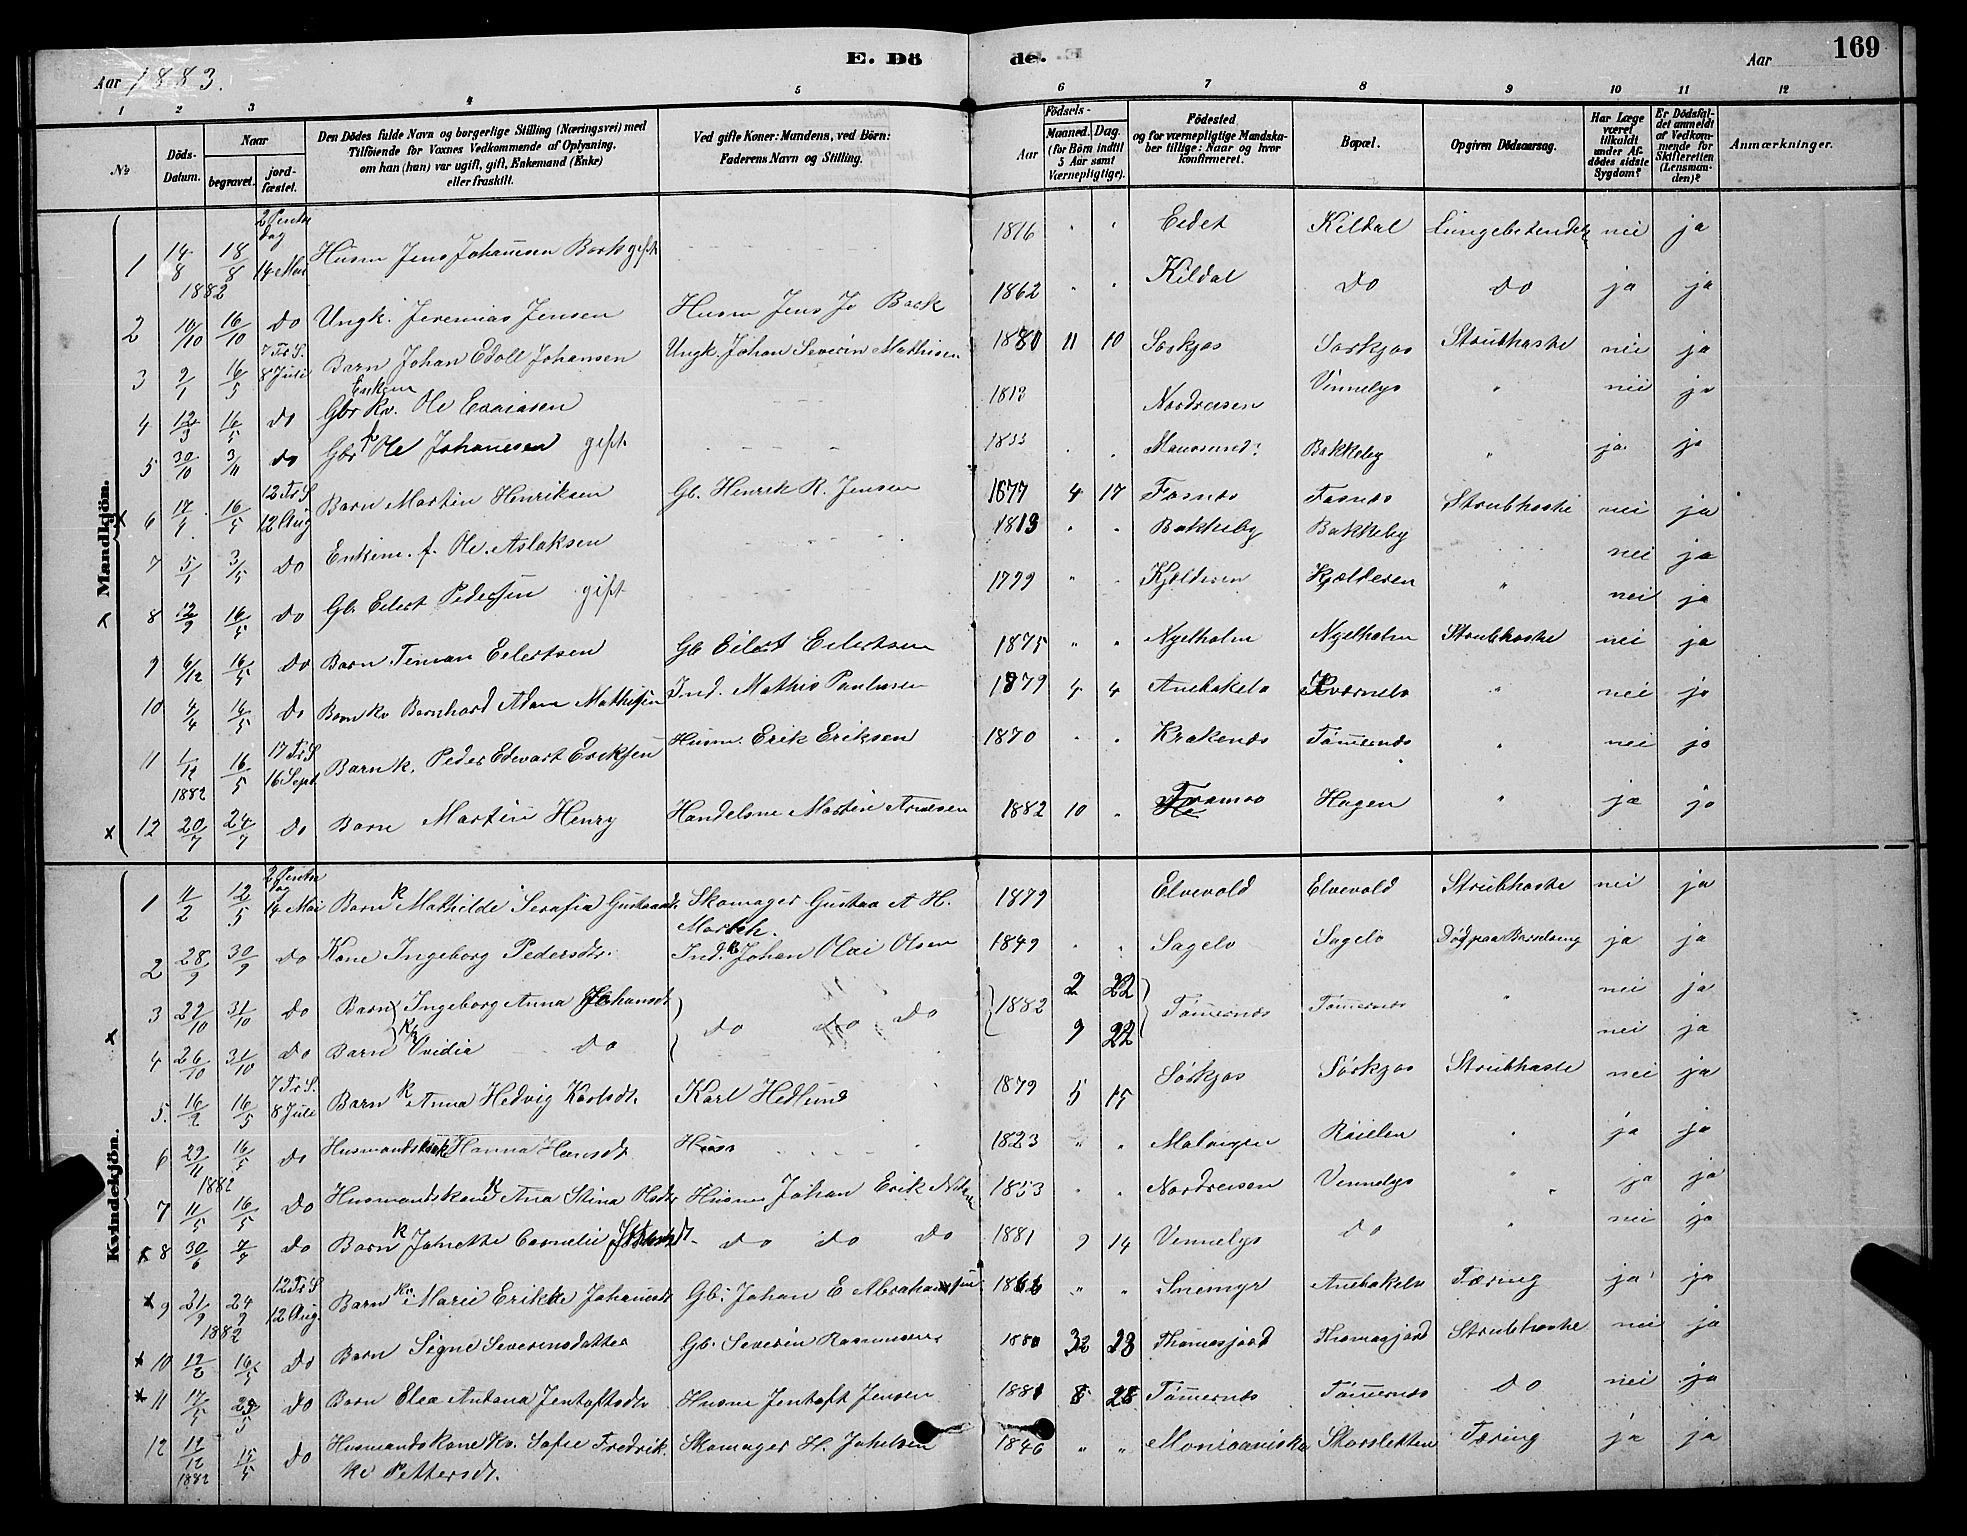 E. Dö de.
169
Aar 1883.
Aar
1 2 3 4 5 6 7 8 9 10 11 12
№
Döds-Datum.
Naar
begravet.
jord-fæstet.
Den Dödes fulde Navn og borgerlige Stilling (Næringsvei) med
Tilföiende for Voxnes Vedkommende af Oplysning.
om han (hun) var ugift, gift, Enkemand (Enke)
eller fraskilt.
Ved gifte Koner: Mandens, ved Börn:
Faderens Navn og Stilling.
Födsels-
Aar
Maaned. Dag.
(for Börn indtil
5 Aar samt
Værnepligtige).
Födested
og for værnepligtige Mandska-
ber tillige: Naar og hvor
konfirmeret.
Bopæl.
Opgiven Dödsaarsag.
Har Læge
været
tilkaldt
under Af-
dödes sidste
Sygdom?
Er Dödsfal-
det anmeldt
af Vedkom-
mende for
Skifteretten
(Lensman-
den)?
Anmærkninger.
Mandkjön.
1 14/8 1882 18/8 2 Pintse dag 14 Mai Husm Jens Johannesen Bark gift 1816 " " Eidet Kildal Lungebetendelse nei ja
2 10/10 16/10 do Ungk. Jeremias Jensen Husm Jens Jo Back 1862 " " Kildal do do ja ja
3 2/1 16/5 7 Tr S. 8 Juli Barn Johan Edoll Johansen Ungk. Johan Severin Mathisen 1880 11 10 Sørkjos Sørkjos Strubhoste nei ja
4 12/3 16/5 do Enkem Gbr kv. Ole Esaiasen 1813 Nordreisen Vinnelys " nei ja
5 30/10 3/11 do Gbr Ole Johannesen gift 1833 " " Maursund Bakkeby " ja ja
6 17/4 16/5 12 Tr S 12 Aug Barn Martin Henriksen Gb. Henrik R. Jensen 1877 4 17 Fosnes Fosnes Strubhoste nei ja
7 5/1 3/5 do Enkem. f. Ole Aslaksen 1813 " " Bakkeby Bakkeby nei ja
8 12/9 16/5 do Gb. Eilert Pedersen gift 1799 " " Kjelderen Kjælderen " nei ja
9 6/12 16/5 do Barn Timan Eilertsen Gb Eilert Eilertsen 1875 " " Nyelholm Nyelholm Strubhoste nei ja
10 4/4 16/5 do Barn kv Bernhard Adam Mathisen Ind. Mathis Paulusen 1879 4 4 Anebakelv Kværnelv " nei ja
11 1/12 1882 16/5 17 Tr S 16 Sept Barn k. Peder Edevart Eriksen Husm. Erik Eriksen 1870 " " Krakenes Tømernes " nei ja
12 20/7 24/7 do Barn Martin Henry Handelsm Martin Arnesen 1882 10 " Tromsø Hagen " ja ja
Kvindekjön.
1 11/2 12/5 2 Pintse dag 14 Mai Barn k Mathilde Serafia Gustavsd. Skomager Gustav A H. 1879 Elvevold Elvevold Strubhoste nei ja
2 28/9 30/9 do Kone Ingeborg Pedersdtr. Ind. k Johan Olai Olsen 1849 " " Sagelv Sagelv Død paa Barselseng ja ja
3 22/10 31/10 do Barn Ingeborg Anna Johansdt do do do 1882 2 22 Tømernes Tømernes " nei ja
4 26/10 31/10 do Barn k Ovidia do 9 22 nei ja
5. 16/2 16/5 7 Tr S. 8 Juli Barn k Anna Hedvig Karlsdt. Karl Hedlund 1879 5 15 Sørkjos Sørkjos Strubhoste nei ja
6 29/11 1882 16/5 do Husmandskone Hanna Hansdt 1823 " " Malvigen Raielen " ja ja
7 11/5 16/5 do Husmandskone k Ana Stina Husm Johan Erik 1853 " " Nordreisen Vinnelys " ja ja
8 30/6 4/7 do Barn k Johette Cornelie do do do 1881 9 14 Vinnelys do " nei ja
9 21/9 1882 24/9 12 Tr S 12 Aug. Barn kv. Marie Erikke Johannsdt Gb. Johan E Abrahamsen 1866 " " Sniemyr Anebakelv Tæring ja ja
10 12/2 16/5 do Barn Signe Severinsdatter Gb. Severin Rasmusen 1880 32 23 Thomasjord Thomasjord Strubhoste nei ja
11 17/5 23/5 do Barn Elea Antona Jentoftsdtr Husm Jentoft Jensen 1881 8 28 Tømernes Tømernes do nei ja
12 12/12 1882 15/5 do Husmandskone kv. Sofie Fredrik- Skomager H. Johelsen 1846 " " Monioaniska Storsletten Tæring ja ja
ke Pettersdt.